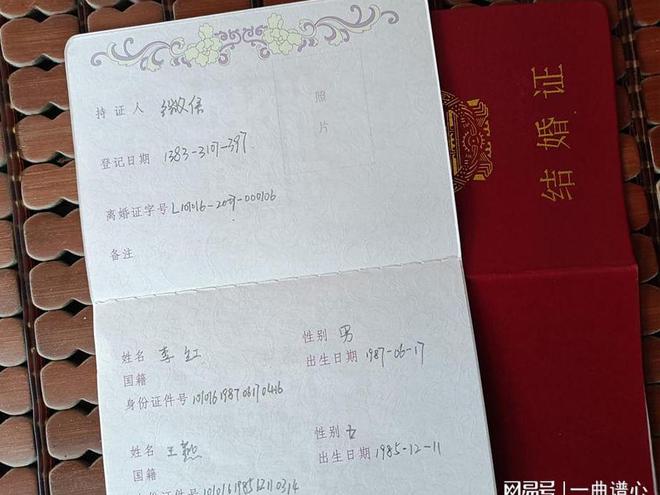 照片
持证人 微信
登记日期 1383-3107-397
离婚证字号 L101016-20-000106
备注
姓名 李红 性别 男
国籍 出生日期 1987-06-17
身份证件号 101016198706170416
姓名 王 性别 女
国籍 出生日期 1985-12-11
身份证件号 101016198512110314
结婚证
网易号 | 一曲谱心